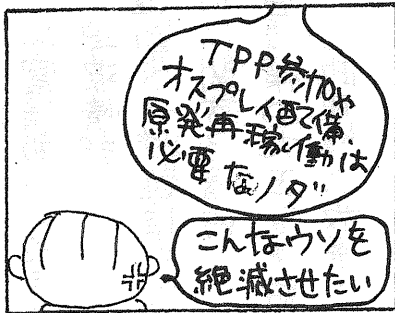 TPP参加や
オスプレイ配備、
原発再稼働は
必要なノダ
こんなウソを
絶滅させたい